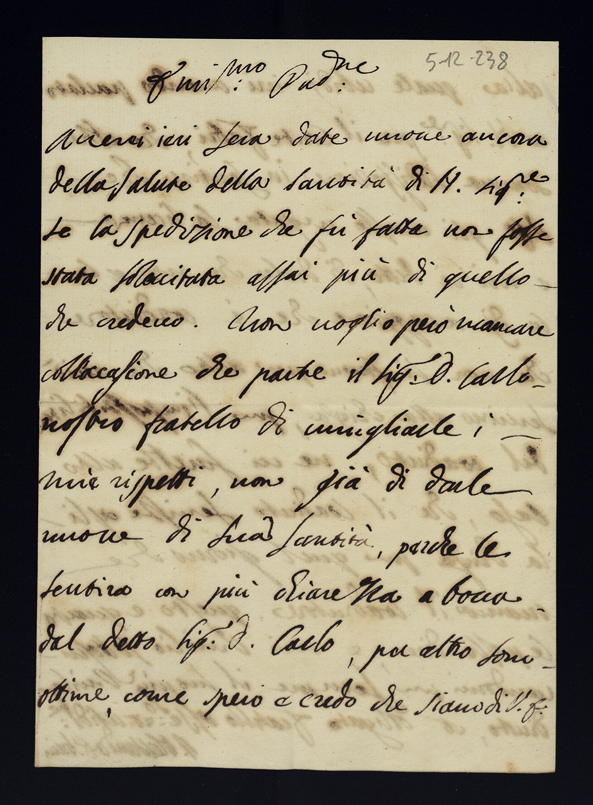 5-12-238
Car.mo Padre
Avverei ieri sera date nuove ancora
della Salute della Santità di N. Sig.re
se la spedizione che fù fatta non fosse
stata sollecitata assai più di quello
che credevo. Non voglio però mancare
coll'occasione che parte il Sig.r D. Carlo
nostro fratello di umigliarle i
miei rispetti, non già di darle
nuove di Sua Santità, perche le
sentirà con più chiarezza a bocca
dal detto Sig.r D. Carlo, per altro sono
ottime, come spero e credo che siano di V.